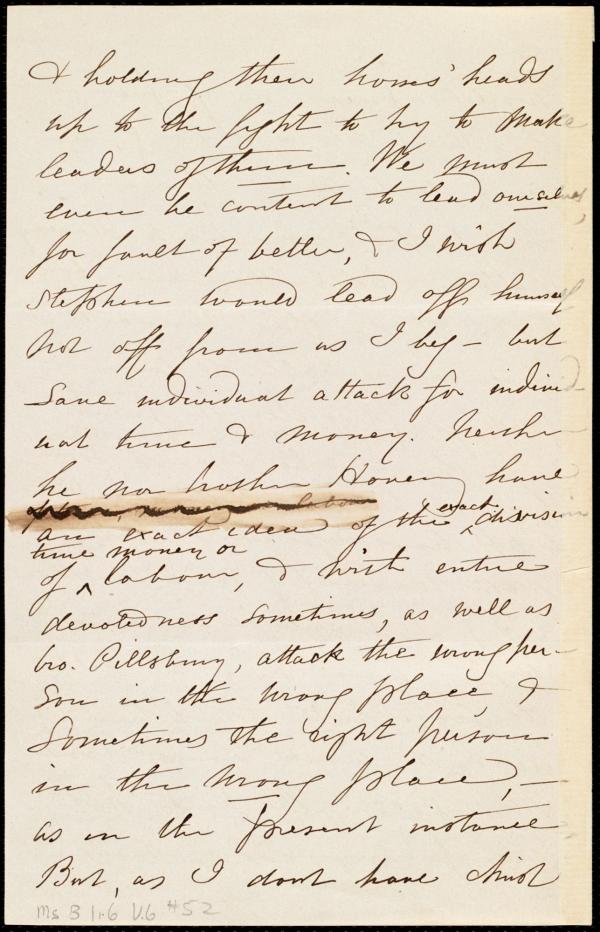 & holding their horses' heads
up to the fight to try to make
leaders of them. We must
even be content to lead ourselves,
for fault of better, & I wish
Stephen would lead off himself
not off from us I beg - but
save individual attack for individ-
ual time & money. Neither
he nor brother Hovey have
an exact idea of the exact division
time money or
of ^ labour, & with entire
devotedness sometimes, as well as
bro. Pillsbury, attack the wrong per-
son in the wrong place, &
sometimes the right person
in the wrong place, -
as in the present instance
But, as I dont have
Ms B 1.6 V.6 #52